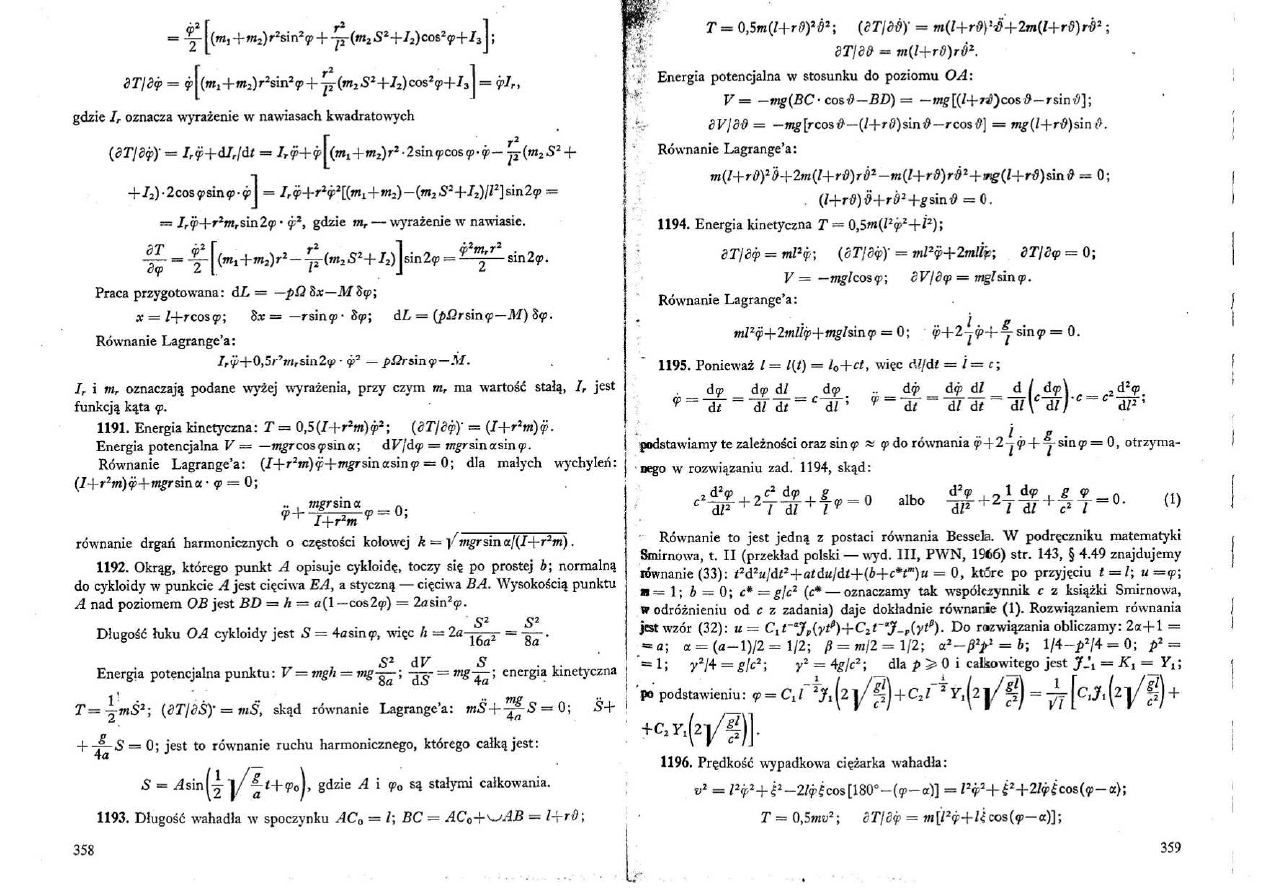 = φ̇²/2 [(m₁+m₂)r²sin²φ + r²/l² (m₂S²+I₂)cos²φ+I₃];
∂T/∂φ̇ = φ̇[(m₁+m₂)r²sin²φ + r²/l² (m₂S²+I₂)cos²φ+I₃] = φ̇Iᵣ,
gdzie Iᵣ oznacza wyrażenie w nawiasach kwadratowych
(∂T/∂φ̇)˙ = Iᵣφ̈+dIᵣ/dt = Iᵣφ̈+φ̇[(m₁+m₂)r²·2sinφcosφ·φ̇ − r²/l² (m₂S²+
+I₂)·2cosφsinφ·φ̇] = Iᵣφ̈+r²φ̇²[(m₁+m₂)−(m₂S²+I₂)/l²]sin2φ =
= Iᵣφ̈+r²mᵣsin2φ · φ̇², gdzie mᵣ — wyrażenie w nawiasie.
∂T/∂φ = φ̇²/2 [(m₁+m₂)r² − r²/l² (m₂S²+I₂)]sin2φ = φ̇²mᵣr²/2 sin2φ.
Praca przygotowana: dL = −pΩδx−Mδφ;
x = l+rcosφ; δx = −rsinφ · δφ; dL = (pΩrsinφ−M)δφ.
Równanie Lagrange'a:
Iᵣφ̈+0,5r²mᵣsin2φ · φ̇² = pΩrsinφ−M.
Iᵣ i mᵣ oznaczają podane wyżej wyrażenia, przy czym mᵣ ma wartość stałą, Iᵣ jest
funkcją kąta φ.
1191. Energia kinetyczna: T = 0,5(I+r²m)φ̇²; (∂T/∂φ̇)˙ = (I+r²m)φ̈.
Energia potencjalna V = −mgrcosφsinα; dV/dφ = mgrsinαsinφ.
Równanie Lagrange'a: (I+r²m)φ̈+mgrsinαsinφ = 0; dla małych wychyleń:
(I+r²m)φ̈+mgrsinα · φ = 0;
φ̈ + mgrsinα/(I+r²m) φ = 0;
równanie drgań harmonicznych o częstości kołowej k = √mgrsinα/(I+r²m).
1192. Okrąg, którego punkt A opisuje cykloidę, toczy się po prostej b; normalną
do cykloidy w punkcie A jest cięciwa EA, a styczną — cięciwa BA. Wysokością punktu
A nad poziomem OB jest BD = h = a(1−cos2φ) = 2asin²φ.
Długość łuku OA cykloidy jest S = 4asinφ, więc h = 2a S²/16a² = S²/8a.
Energia potencjalna punktu: V = mgh = mg S²/8a; dV/dS = mg S/4a; energia kinetyczna
T = 1/2 mṠ²; (∂T/∂Ṡ)˙ = mS̈, skąd równanie Lagrange'a: mS̈ + mg/4a S = 0; S̈+
+ g/4a S = 0; jest to równanie ruchu harmonicznego, którego całką jest:
S = Asin(1/2 √g/a t+φ₀), gdzie A i φ₀ są stałymi całkowania.
1193. Długość wahadła w spoczynku AC₀ = l; BC = AC₀+◡AB = l+rϑ;
358
T = 0,5m(l+rϑ)²ϑ̇²; (∂T/∂ϑ̇)˙ = m(l+rϑ)²ϑ̈+2m(l+rϑ)rϑ̇²;
∂T/∂ϑ = m(l+rϑ)rϑ̇².
Energia potencjalna w stosunku do poziomu OA:
V = −mg(BC · cosϑ−BD) = −mg[(l+rϑ)cosϑ−rsinϑ];
∂V/∂ϑ = −mg[rcosϑ−(l+rϑ)sinϑ−rcosϑ] = mg(l+rϑ)sinϑ.
Równanie Lagrange'a:
m(l+rϑ)²ϑ̈+2m(l+rϑ)rϑ̇²−m(l+rϑ)rϑ̇²+mg(l+rϑ)sinϑ = 0;
(l+rϑ)ϑ̈+rϑ̇²+gsinϑ = 0.
1194. Energia kinetyczna T = 0,5m(l²φ̇²+l̇²);
∂T/∂φ̇ = ml²φ̇; (∂T/∂φ̇)˙ = ml²φ̈+2mll̇φ̇; ∂T/∂φ = 0;
V = −mglcosφ; ∂V/∂φ = mglsinφ.
Równanie Lagrange'a:
ml²φ̈+2mll̇φ̇+mglsinφ = 0; φ̈+2 l̇/l φ̇ + g/l sinφ = 0.
1195. Ponieważ l = l(t) = l₀+ct, więc dl/dt = l̇ = c;
φ̇ = dφ/dt = dφ/dl dl/dt = c dφ/dl; φ̈ = dφ̇/dt = dφ̇/dl dl/dt = d/dl (c dφ/dl)·c = c² d²φ/dl²;
podstawiamy te zależności oraz sinφ ≈ φ do równania φ̈+2 l̇/l φ̇ + g/l sinφ = 0, otrzyma-
nego w rozwiązaniu zad. 1194, skąd:
c² d²φ/dl² + 2 c²/l dφ/dl + g/l φ = 0 albo d²φ/dl² + 2 1/l dφ/dl + g/c² φ/l = 0. (1)
Równanie to jest jedną z postaci równania Bessela. W podręczniku matematyki
Smirnowa, t. II (przekład polski — wyd. III, PWN, 1966) str. 143, § 4.49 znajdujemy
równanie (33): t²d²u/dt²+atdu/dt+(b+c*tᵐ)u = 0, które po przyjęciu t = l; u = φ;
m = 1; b = 0; c* = g/c² (c* — oznaczamy tak współczynnik c z książki Smirnowa,
w odróżnieniu od c z zadania) daje dokładnie równanie (1). Rozwiązaniem równania
jest wzór (32): u = C₁t⁻ᵅJₚ(γtᵝ)+C₂t⁻ᵅJ₋ₚ(γtᵝ). Do rozwiązania obliczamy: 2α+1 =
= a; α = (a−1)/2 = 1/2; β = m/2 = 1/2; α²−β²p² = b; 1/4−p²/4 = 0; p² =
= 1; γ²/4 = g/c²; γ² = 4g/c²; dla p ⩾ 0 i całkowitego jest J₋₁ = K₁ = Y₁;
po podstawieniu: φ = C₁l^(−1/2) J₁(2√gl/c²)+C₂l^(−1/2) Y₁(2√gl/c²) = 1/√l [C₁J₁(2√gl/c²)+
+C₂Y₁(2√gl/c²)].
1196. Prędkość wypadkowa ciężarka wahadła:
v² = l²φ̇²+ξ̇²−2lφ̇ξ̇cos[180°−(φ−α)] = l²φ̇²+ξ̇²+2lφ̇ξ̇cos(φ−α);
T = 0,5mv²; ∂T/∂φ̇ = m[l²φ̇+lξ̇cos(φ−α)];
359